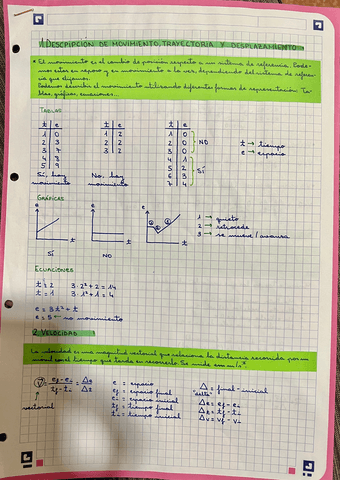 1. DESCRIPCIÓN DE MOVIMIENTO, TRAYECTORIA Y DESPLAZAMIENTO
• El movimiento es el cambio de posición respecto a un sistema de referencia. Pode-
mos estar en reposo y en movimiento a la vez, dependiendo del sistema de referen-
cia que elijamos.
Podemos describir el movimiento utilizando diferentes formas de representación: Ta-
blas, gráficas, ecuaciones...
TABLAS
t e t e t e
1 0 1 2 1 0
2 3 2 2 2 0 NO t → tiempo
3 7 3 2 3 0 e → espacio
4 8 4 1
5 9 5 2 SÍ
Sí, hay No hay 6 3
movimiento movimiento 7 4
GRÁFICAS
e e e
1 → quieto
2 → retrocede
3 → se mueve / avanza
t t t
SÍ NO
ECUACIONES
t = 2 3·2² + 2 = 14
t = 1 3·1² + 1 = 4
e = 3t² + t
e = 5 ← no movimiento
2. VELOCIDAD
La velocidad es una magnitud vectorial que relaciona la distancia recorrida por un
móvil con el tiempo que tarda en recorrerlo. Se mide en m/s
V = ef - ei / tf - ti = Δe / Δt
vectorial
e = espacio
ef = espacio final
ei = espacio inicial
tf = tiempo final
ti = tiempo inicial
Δ = final - inicial
"delta"
Δe = ef - ei
Δt = tf - ti
Δv = vf - vi